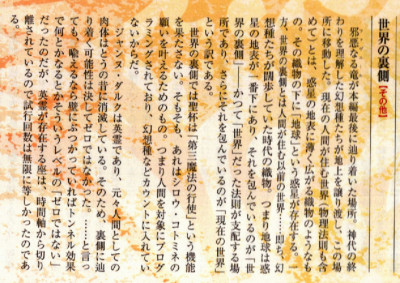 世界の裏側【その他】
邪悪なる竜が本編最後に辿り着いた場所。神代の終
わりを理解した幻想種たちが地上を譲り渡し、この場
所に移動した。現在の人間が住む世界、物理法則も含
めて）とは、惑星の地表に薄く広がる織物のようなも
の。その織物の下に「地球」という惑星が存在する。
方、世界の裏側とは人間が住む以前の世界……即ち、幻
想種たちが闊歩していた時代の織物。つまり地球は惑
星の地表が一番下にあり、それを包んでいるのが「世
界の裏側」――かつて「世界」だった法則が支配する場
所であり、さらにそれを包んでいるのが「現在の世界」
という訳である。
世界の裏側では聖杯は「第三魔法の行使」という機能
を果たさない。そもそも、あれはシロウ・コトミネの
願いを叶えるためのもの。つまり人間を対象にプログ
ラミングされており、幻想種などカウントに入れてい
ないからだ。
ジャンヌ・ダルクは英霊であり、元々人間としての
肉体はとうの昔に消滅している。そのため、裏側に辿
り着く可能性は決してゼロではなかった。……と言っ
ても、喩えるなら壁にぶつかっていればトンネル効果
で何とかなるとかそういうレベルの「ゼロではない」
だったのだが、英霊が存在する座は、時間軸から切り
離されているので試行回数は無限に等しかったのであ